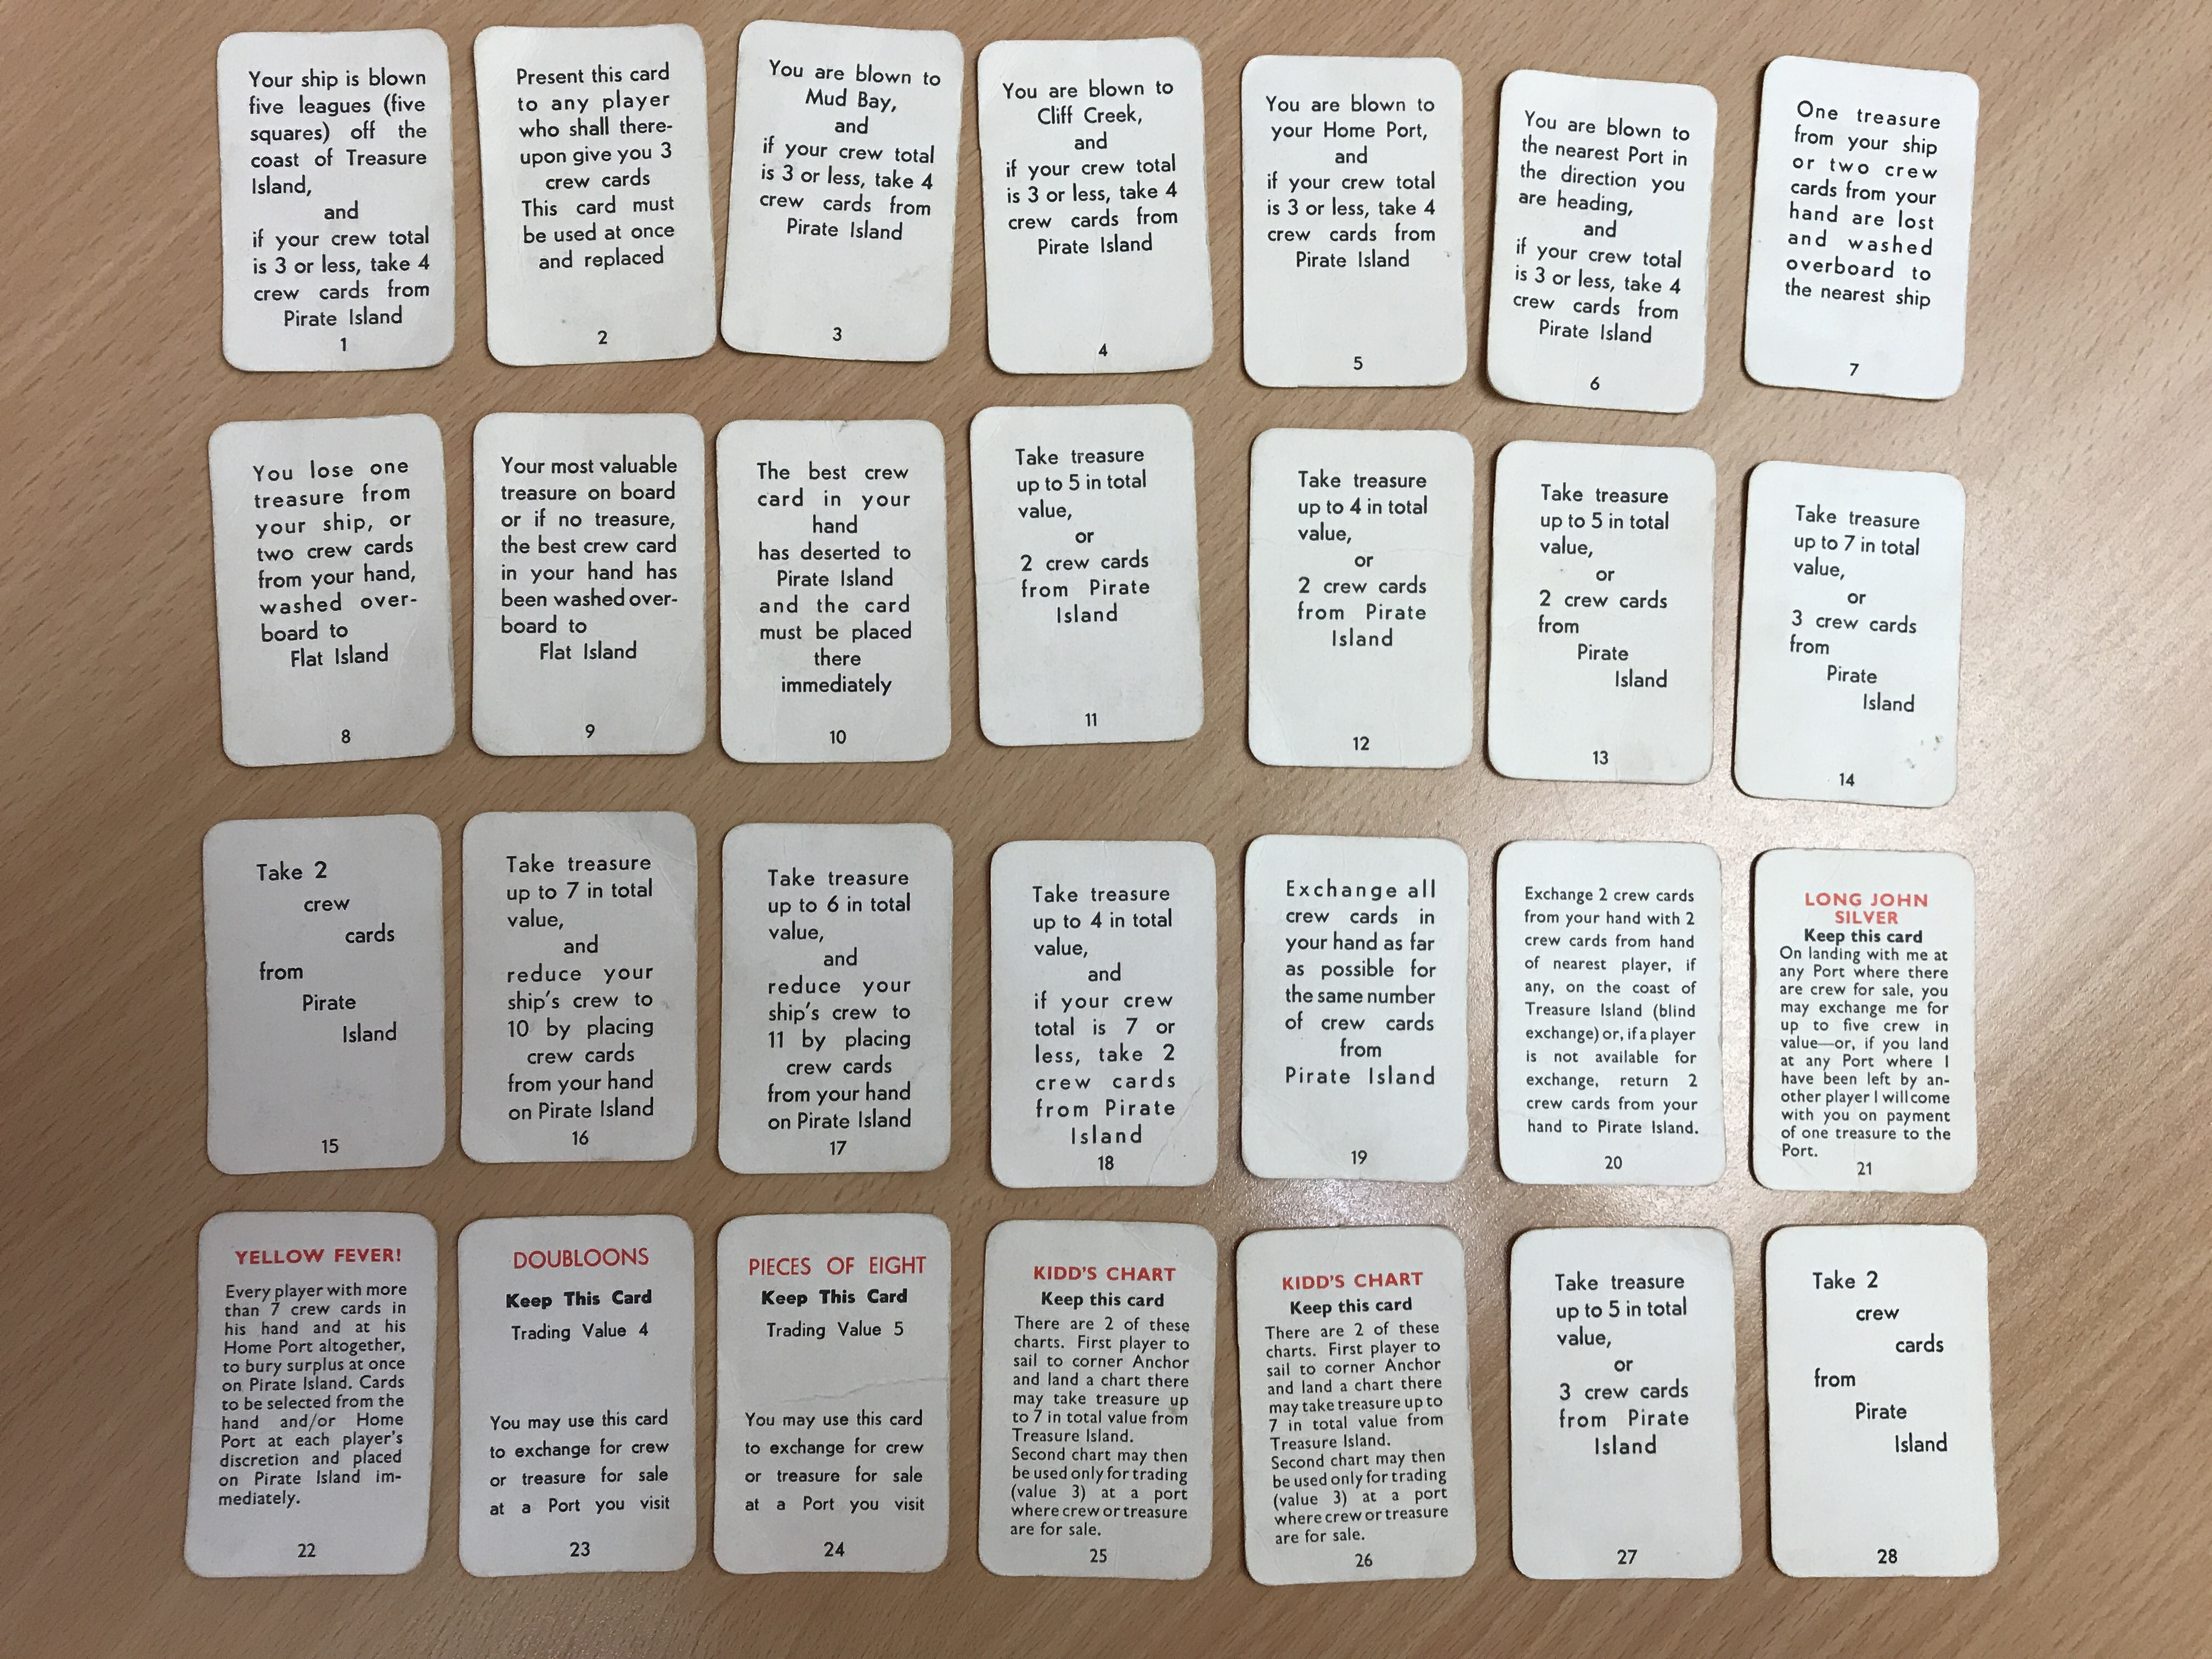 Your ship is blown
five leagues (five
squares) off the
coast of Treasure
Island,
and
if your crew total
is 3 or less, take 4
crew cards from
Pirate Island
1
Present this card
to any player
who shall there-
upon give you 3
crew cards
This card must
be used at once
and replaced
2
You are blown to
Mud Bay,
and
if your crew total
is 3 or less, take 4
crew cards from
Pirate Island
3
You are blown to
Cliff Creek,
and
if your crew total
is 3 or less, take 4
crew cards from
Pirate Island
4
You are blown to
your Home Port,
and
if your crew total
is 3 or less, take 4
crew cards from
Pirate Island
5
You are blown to
the nearest Port in
the direction you
are heading,
and
if your crew total
is 3 or less, take 4
crew cards from
Pirate Island
6
One treasure
from your ship
or two crew
cards from your
hand are lost
and washed
overboard to
the nearest ship
7
You lose one
treasure from
your ship, or
two crew cards
from your hand,
washed over-
board to
Flat Island
8
Your most valuable
treasure on board
or if no treasure,
the best crew card
in your hand has
been washed over-
board to
Flat Island
9
The best crew
card in your
hand
has deserted to
Pirate Island
and the card
must be placed
there
immediately
10
Take treasure
up to 5 in total
value,
or
2 crew cards
from Pirate
Island
11
Take treasure
up to 4 in total
value,
or
2 crew cards
from Pirate
Island
12
Take treasure
up to 5 in total
value,
or
2 crew cards
from
Pirate
Island
13
Take treasure
up to 7 in total
value,
or
3 crew cards
from
Pirate
Island
14
Take 2
crew
cards
from
Pirate
Island
15
Take treasure
up to 7 in total
value,
and
reduce your
ship's crew to
10 by placing
crew cards
from your hand
on Pirate Island
16
Take treasure
up to 6 in total
value,
and
reduce your
ship's crew to
11 by placing
crew cards
from your hand
on Pirate Island
17
Take treasure
up to 4 in total
value,
and
if your crew
total is 7 or
less, take 2
crew cards
from Pirate
Island
18
Exchange all
crew cards in
your hand as far
as possible for
the same number
of crew cards
from
Pirate Island
19
Exchange 2 crew cards
from your hand with 2
crew cards from hand
of nearest player, if
any, on the coast of
Treasure Island (blind
exchange) or, if a player
is not available for
exchange, return 2
crew cards from your
hand to Pirate Island.
20
LONG JOHN
SILVER
Keep this card
On landing with me at
any Port where there
are crew for sale, you
may exchange me for
up to five crew in
value—or, if you land
at any Port where I
have been left by an-
other player I will come
with you on payment
of one treasure to the
Port.
21
YELLOW FEVER!
Every player with more
than 7 crew cards in
his hand and at his
Home Port altogether,
to bury surplus at once
on Pirate Island. Cards
to be selected from the
hand and/or Home
Port at each player's
discretion and placed
on Pirate Island im-
mediately.
22
DOUBLOONS
Keep This Card
Trading Value 4
You may use this card
to exchange for crew
or treasure for sale
at a Port you visit
23
PIECES OF EIGHT
Keep This Card
Trading Value 5
You may use this card
to exchange for crew
or treasure for sale
at a Port you visit
24
KIDD'S CHART
Keep this card
There are 2 of these
charts. First player to
sail to corner Anchor
and land a chart there
may take treasure up
to 7 in total value from
Treasure Island.
Second chart may then
be used only for trading
(value 3) at a port
where crew or treasure
are for sale.
25
KIDD'S CHART
Keep this card
There are 2 of these
charts. First player to
sail to corner Anchor
and land a chart there
may take treasure up to
7 in total value from
Treasure Island.
Second chart may then
be used only for trading
(value 3) at a port
where crew or treasure
are for sale.
26
Take treasure
up to 5 in total
value,
or
3 crew cards
from Pirate
Island
27
Take 2
crew
cards
from
Pirate
Island
28